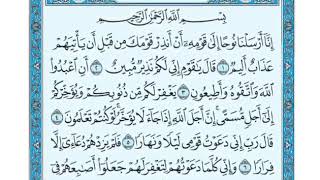 بِسْمِ اللَّهِ الرَّحْمَٰنِ الرَّحِيمِ
إِنَّا أَرْسَلْنَا نُوحًا إِلَىٰ قَوْمِهِ أَنْ أَنذِرْ قَوْمَكَ مِن قَبْلِ أَن يَأْتِيَهُمْ
عَذَابٌ أَلِيمٌ ١ قَالَ يَا قَوْمِ إِنِّي لَكُمْ نَذِيرٌ مُّبِينٌ ٢ أَنِ اعْبُدُوا
اللَّهَ وَاتَّقُوهُ وَأَطِيعُونِ ٣ يَغْفِرْ لَكُم مِّن ذُنُوبِكُمْ وَيُؤَخِّرْكُمْ
إِلَىٰ أَجَلٍ مُّسَمًّى إِنَّ أَجَلَ اللَّهِ إِذَا جَاءَ لَا يُؤَخَّرُ لَوْ كُنتُمْ تَعْلَمُونَ ٤
قَالَ رَبِّ إِنِّي دَعَوْتُ قَوْمِي لَيْلًا وَنَهَارًا ٥ فَلَمْ يَزِدْهُمْ دُعَائِي إِلَّا
فِرَارًا ٦ وَإِنِّي كُلَّمَا دَعَوْتُهُمْ لِتَغْفِرَ لَهُمْ جَعَلُوا أَصَابِعَهُمْ فِي